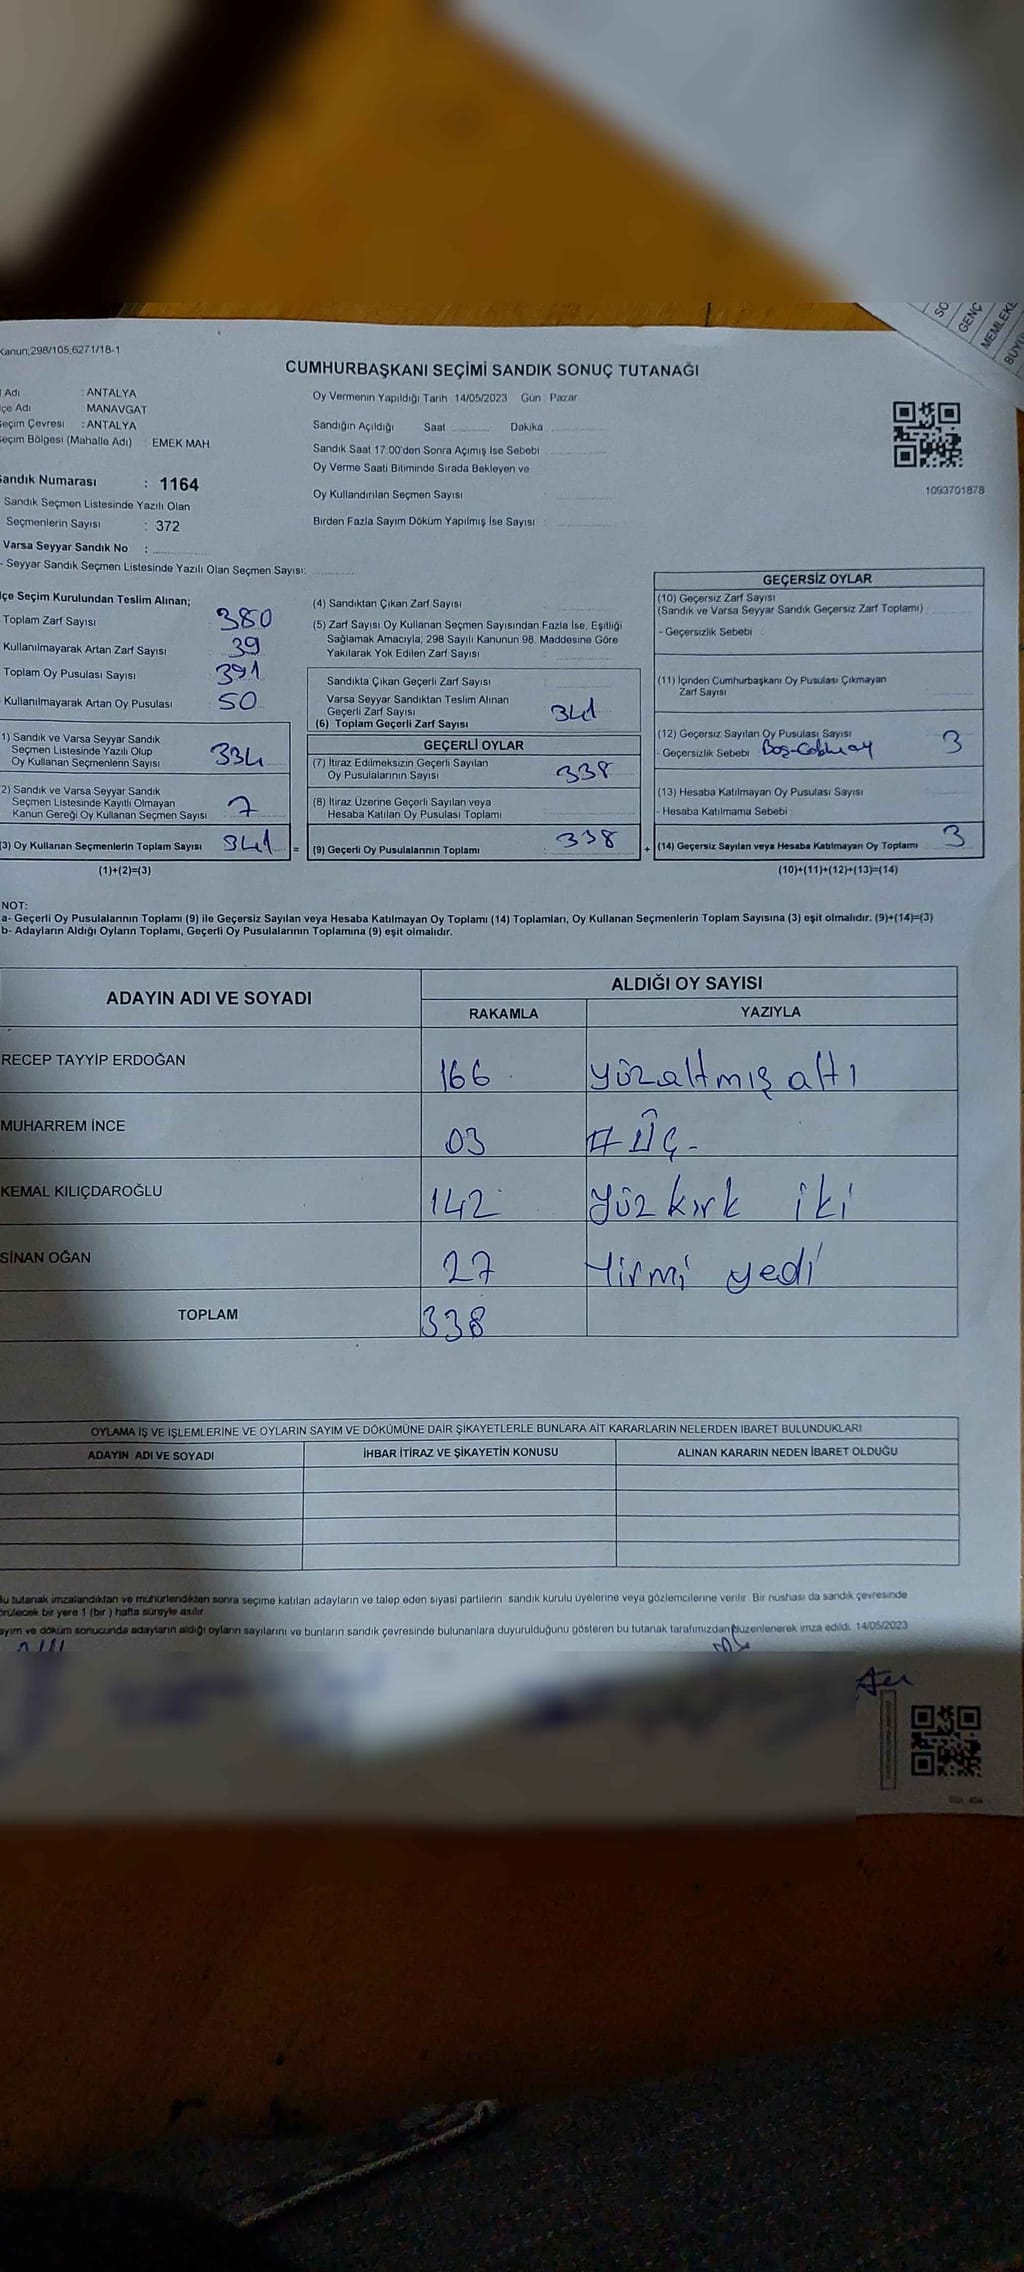 SO
GENÇ
MEMLEKE
BÜYÜ
Kanun;298/105,6271/18-1
CUMHURBAŞKANI SEÇİMİ SANDIK SONUÇ TUTANAĞI
Adı : ANTALYA
çe Adı MANAVGAT
eçim Çevresi : ANTALYA
eçim Bölgesi (Mahalle Adı) : EMEK MAH
Oy Vermenin Yapıldığı Tarih 14/05/2023 Gün : Pazar
Sandığın Açıldığı Saat Dakika
Sandık Saat 17:00'den Sonra Açımış İse Sebebi
Oy Verme Saati Bitiminde Sırada Bekleyen ve
Oy Kullandırılan Seçmen Sayısı
Birden Fazla Sayım Döküm Yapılmış İse Sayısı :
1093701878
andık Numarası : 1164
Sandık Seçmen Listesinde Yazılı Olan
Seçmenlerin Sayısı : 372
Varsa Seyyar Sandık No :
- Seyyar Sandık Seçmen Listesinde Yazılı Olan Seçmen Sayısı:
lçe Seçim Kurulundan Teslim Alınan;
Toplam Zarf Sayısı 380
Kullanılmayarak Artan Zarf Sayısı 39
Toplam Oy Pusulası Sayısı 391
Kullanılmayarak Artan Oy Pusulası 50
1) Sandık ve Varsa Seyyar Sandık
Seçmen Listesinde Yazılı Olup
Oy Kullanan Seçmenlerin Sayısı 334
2) Sandık ve Varsa Seyyar Sandık
Seçmen Listesinde Kayıtlı Olmayan
Kanun Gereği Oy Kullanan Seçmen Sayısı 7
(3) Oy Kullanan Seçmenlerin Toplam Sayısı 341 =
(1)+(2)=(3)
(4) Sandıktan Çıkan Zarf Sayısı
(5) Zarf Sayısı Oy Kullanan Seçmen Sayısından Fazla İse, Eşitliği
Sağlamak Amacıyla, 298 Sayılı Kanunun 98. Maddesine Göre
Yakılarak Yok Edilen Zarf Sayısı
Sandıkta Çıkan Geçerli Zarf Sayısı
Varsa Seyyar Sandıktan Teslim Alınan
Geçerli Zarf Sayısı
(6) Toplam Geçerli Zarf Sayısı 341
GEÇERLİ OYLAR
(7) İtiraz Edilmeksizin Geçerli Sayılan
Oy Pusulalarının Sayısı 338
(8) İtiraz Üzerine Geçerli Sayılan veya
Hesaba Katılan Oy Pusulası Toplamı
(9) Geçerli Oy Pusulalarının Toplamı : 338 +
GEÇERSİZ OYLAR
(10) Geçersiz Zarf Sayısı
(Sandık ve Varsa Seyyar Sandık Geçersiz Zarf Toplamı)
- Geçersizlik Sebebi :
(11) İçinden Cumhurbaşkanı Oy Pusulası Çıkmayan
Zarf Sayısı
(12) Geçersiz Sayılan Oy Pusulası Sayısı 3
- Geçersizlik Sebebi
(13) Hesaba Katılmayan Oy Pusulası Sayısı
- Hesaba Katılmama Sebebi :
(14) Geçersiz Sayılan veya Hesaba Katılmayan Oy Toplamı 3
(10)+(11)+(12)+(13)=(14)
NOT:
a- Geçerli Oy Pusulalarının Toplamı (9) ile Geçersiz Sayılan veya Hesaba Katılmayan Oy Toplamı (14) Toplamları, Oy Kullanan Seçmenlerin Toplam Sayısına (3) eşit olmalıdır. (9)+(14)=(3)
b- Adayların Aldığı Oyların Toplamı, Geçerli Oy Pusulalarının Toplamına (9) eşit olmalıdır.
ADAYIN ADI VE SOYADI
ALDIĞI OY SAYISI
RAKAMLA YAZIYLA
RECEP TAYYİP ERDOĞAN 166 yüzaltmış altı
MUHARREM İNCE 03 Üç
KEMAL KILIÇDAROĞLU 142 yüz kırk iki
SİNAN OĞAN 27 Yirmi yedi
TOPLAM 338
OYLAMA İŞ VE İŞLEMLERİNE VE OYLARIN SAYIM VE DÖKÜMÜNE DAİR ŞİKAYETLERLE BUNLARA AİT KARARLARIN NELERDEN İBARET BULUNDUKLARI
ADAYIN ADI VE SOYADI İHBAR İTİRAZ VE ŞİKAYETİN KONUSU ALINAN KARARIN NEDEN İBARET OLDUĞU
Bu tutanak imzalandıktan ve mühürlendikten sonra seçime katılan adayların ve talep eden siyasi partilerin sandık kurulu üyelerine veya gözlemcilerine verilir. Bir nüshası da sandık çevresinde
örülecek bir yere 1 (bir ) hafta süreyle asılır.
ayım ve döküm sonucunda adayların aldığı oyların sayılarını ve bunların sandık çevresinde bulunanlara duyurulduğunu gösteren bu tutanak tarafımızdan düzenlenerek imza edildi. 14/05/2023